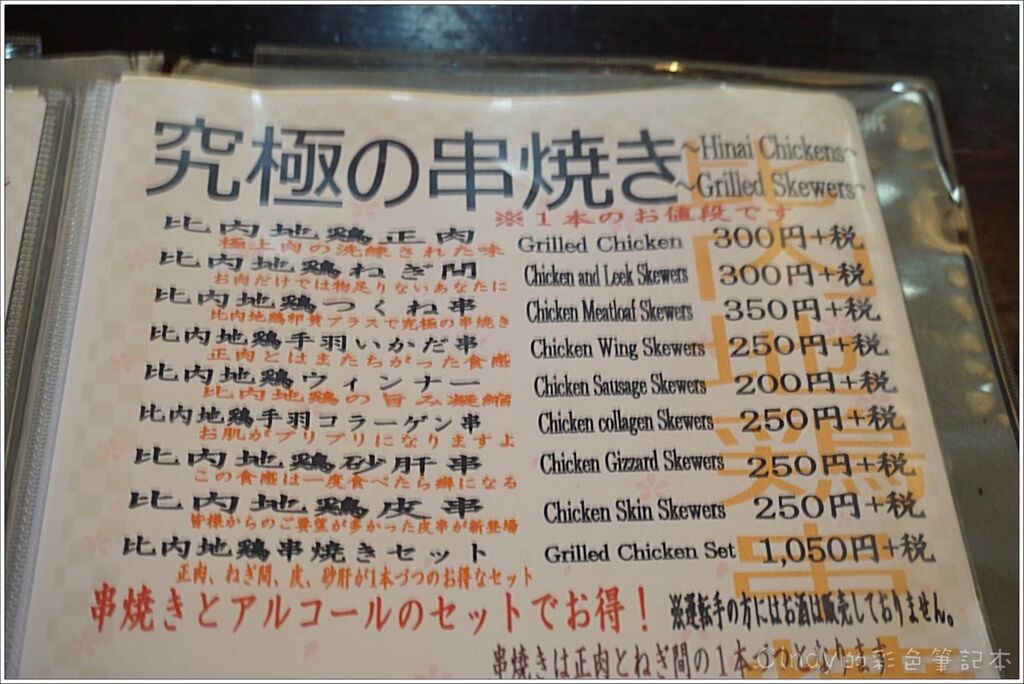 究極の串焼き ~Hinai Chickens~
~Grilled Skewers~
※1本のお値段です
比内地鶏正肉 Grilled Chicken 300円+税
極上肉の洗練された味
比内地鶏ねぎ間 Chicken and Leek Skewers 300円+税
お肉だけでは物足りないあなたに
比内地鶏つくね串 Chicken Meatloaf Skewers 350円+税
比内地鶏卵黄プラスで究極の串焼き
比内地鶏手羽いかだ串 Chicken Wing Skewers 250円+税
正肉とはまたちがった食感
比内地鶏ウィンナー Chicken Sausage Skewers 200円+税
比内地鶏の旨み凝縮
比内地鶏手羽コラーゲン串 Chicken collagen Skewers 250円+税
お肌がプリプリになりますよ
比内地鶏砂肝串 Chicken Gizzard Skewers 250円+税
この食感は一度食べたら癖になる
比内地鶏皮串 Chicken Skin Skewers 250円+税
皆様からのご要望が多かった皮串が新登場
比内地鶏串焼きセット Grilled Chicken Set 1,050円+税
正肉、ねぎ間、皮、砂肝が1本づつのお得なセット
串焼きとアルコールのセットでお得! ※運転手の方にはお酒は販売しておりません。
串焼きは正肉とねぎ間の1本づつとなります
比内地鶏串
Cindy的彩色筆記本